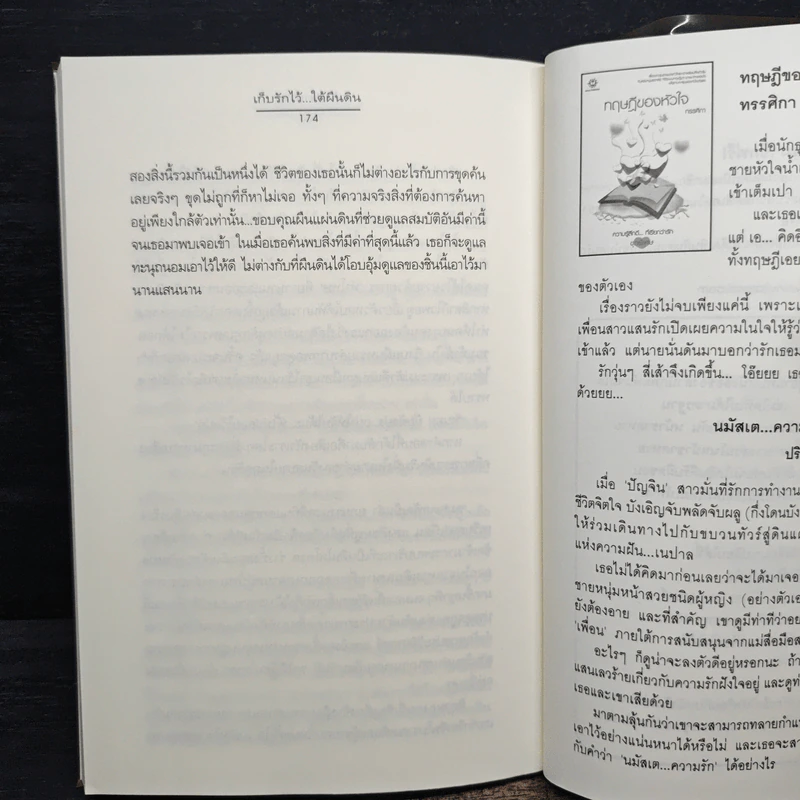 เก็บรักไว้...ใต้ผืนดิน
174
สองสิ่งนี้รวมกันเป็นหนึ่งได้ ชีวิตของเธอนั้นก็ไม่ต่างอะไรกับการขุดค้น
เลยจริงๆ ขุดไม่ถูกที่ก็หาไม่เจอ ทั้งๆ ที่ความจริงสิ่งที่ต้องการค้นหา
อยู่เพียงใกล้ตัวเท่านั้น...ขอบคุณผืนแผ่นดินที่ช่วยดูแลสมบัติอันมีค่านี้
จนเธอมาพบเจอเข้า ในเมื่อเธอค้นพบสิ่งที่มีค่าที่สุดนี้แล้ว เธอก็จะดูแล
ทะนุถนอมเอาไว้ให้ดี ไม่ต่างกับที่ผืนดินได้โอบอุ้มดูแลของชิ้นนี้เอาไว้มา
นานแสนนาน
ทฤษฎีของหัวใจ
ทรรศิกา
ความรู้สึกดี... ที่เรียกว่ารัก
ทฤษฎีขอ
ทรรศิกา
เมื่อนัก
ชายหัวใจน้ำ
เข้าเต็มเปา
และเธอ
แต่ เอ... คิด
ทั้งทฤษฎีเอย
ของตัวเอง
เรื่องราวยังไม่จบเพียงแค่นี้ เพราะ
เพื่อนสาวแสนรักเปิดเผยความในใจให้รู้
เข้าแล้ว แต่นายนั่นดันมาบอกว่ารักเธอ
รักวุ่นๆ สี่เส้าจึงเกิดขึ้น... โอ๊ยยย เธ
ด้วยยย...
นมัสเต...ความ
ปริ
เมื่อ 'ปัญจิน' สาวมั่นที่รักการทำงาน
ชีวิตจิตใจ บังเอิญจับพลัดจับผลู (กึ่งโดนบัง
ให้ร่วมเดินทางไปกับขบวนทัวร์สู่ดินแ
แห่งความฝัน...เนปาล
เธอไม่ได้คิดมาก่อนเลยว่าจะได้มาเจอ
ชายหนุ่มหน้าสวยชนิดผู้หญิง (อย่างตัวเอ
ยังต้องอาย และที่สำคัญ เขาดูมีท่าทีว่าอย
'เพื่อน' ภายใต้การสนับสนุนจากแม่สื่อมือส
อะไรๆ ก็ดูน่าจะลงตัวดีอยู่หรอกนะ ถ้า
แสนเลวร้ายเกี่ยวกับความรักฝังใจอยู่ และดูท่
เธอและเขาเสียด้วย
มาตามลุ้นกันว่าเขาจะสามารถทลายกำแ
เอาไว้อย่างแน่นหนาได้หรือไม่ และเธอจะสา
กับคำว่า 'นมัสเต...ความรัก' ได้อย่างไร